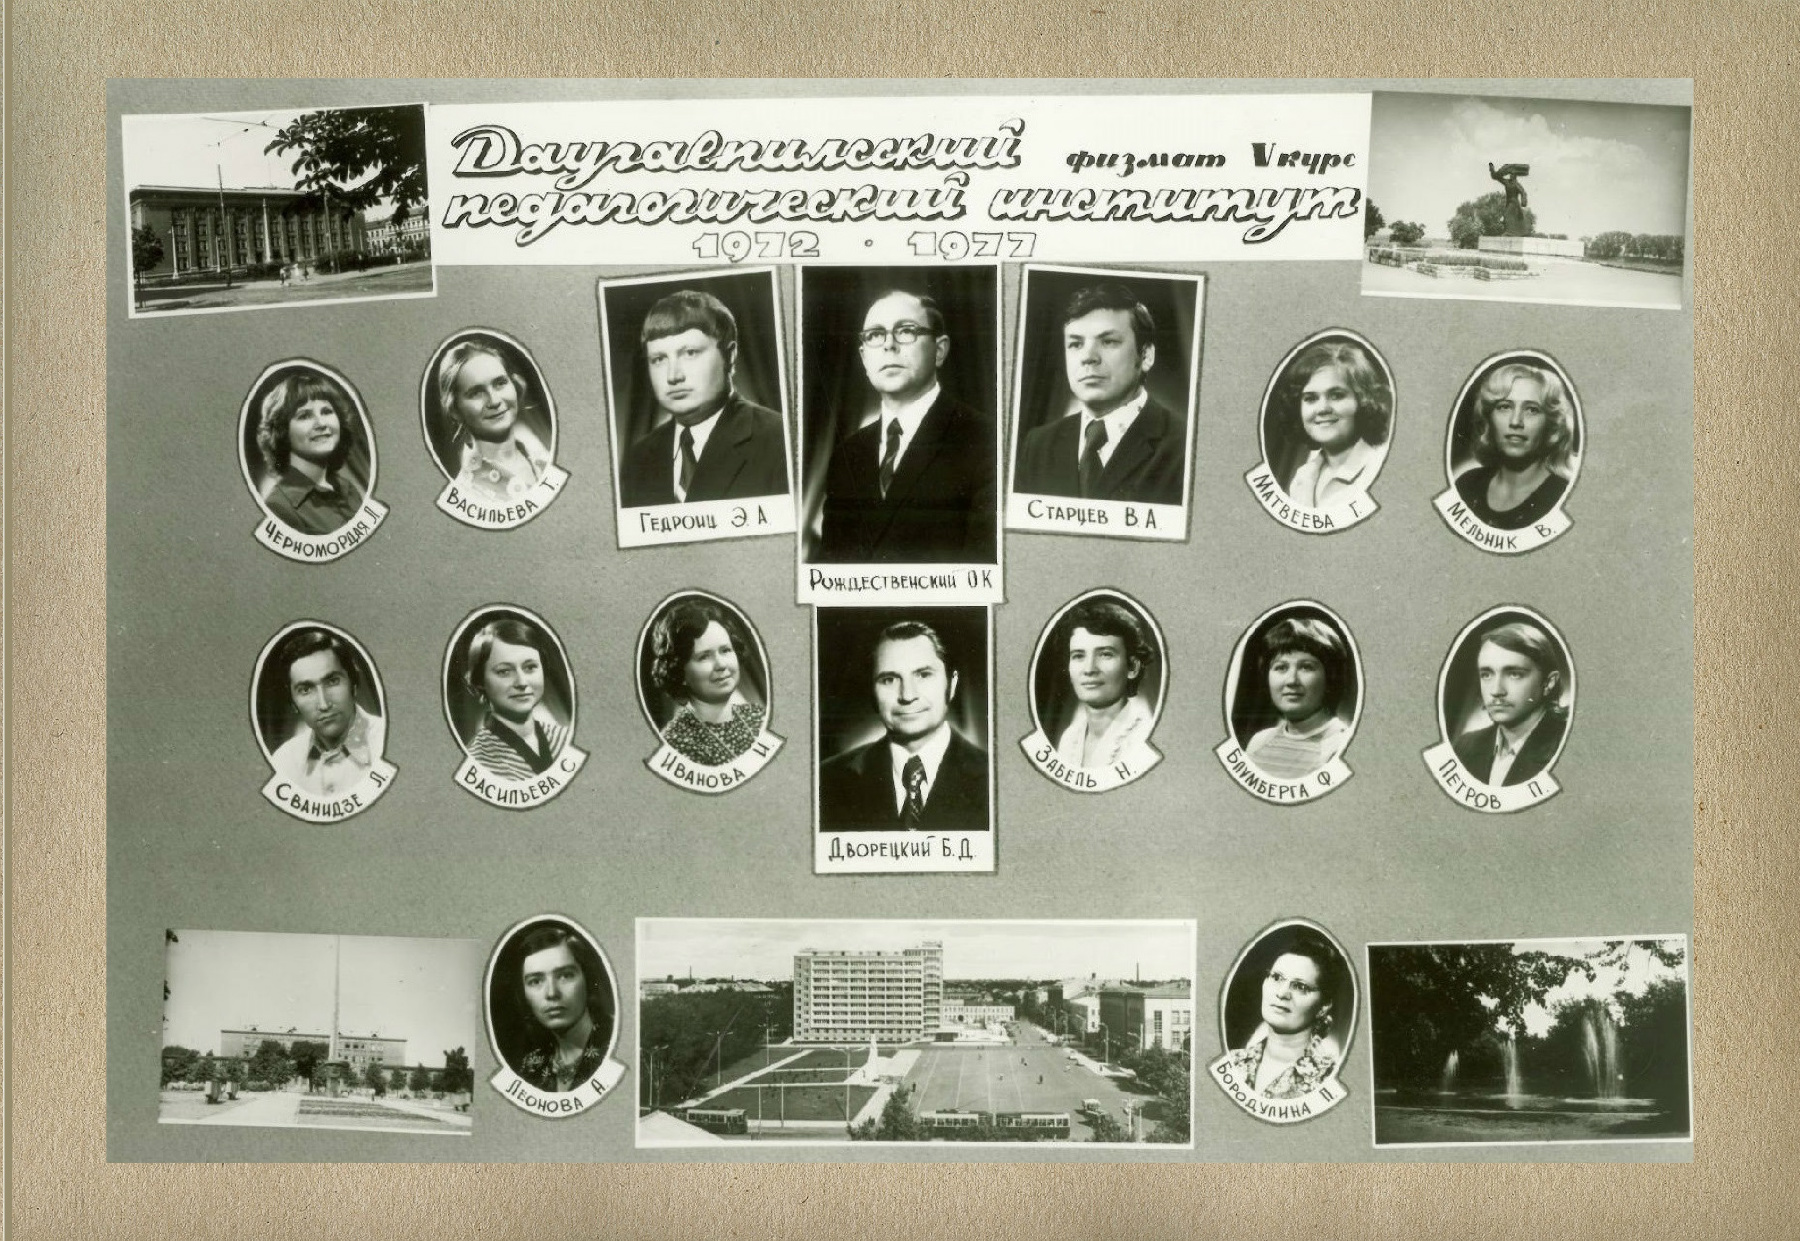 Даугавпилсский физмат V курс
педагогический институт
1972 • 1977
Черномордая Л.
Васильева Т.
Гедроиц Э.А.
Рождественский О К
Старцев В.А.
Матвеева Г.
Мельник В.
Сванидзе Л.
Васильева С
Иванова И.
Дворецкий Б.Д.
Забель Н.
Баумберга Ф
Петров П.
Леонова А.
Бородулина П.